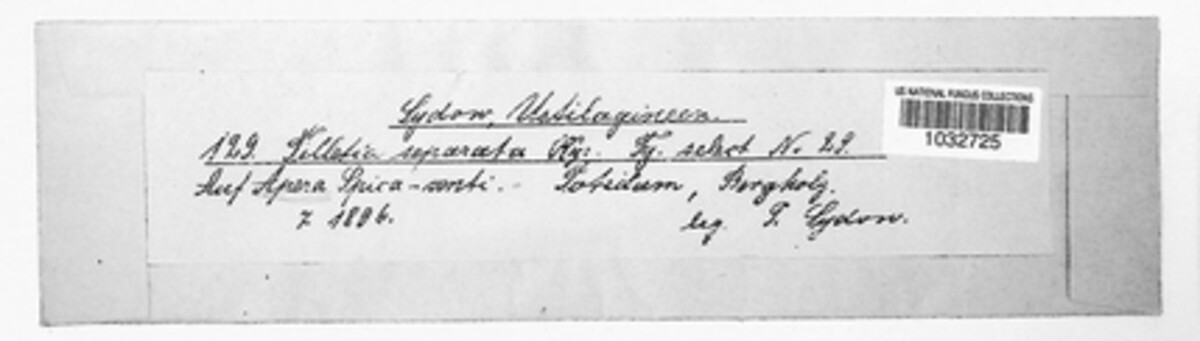 Sydow, Ustilagineen.
US NATIONAL FUNGUS COLLECTIONS
1032725
129. Tilletia separata Kze. Fg. select N. 29.
Auf Apera Spica-venti. - Potsdam, Bergholz.
7 1896.
leg. P. Sydow.